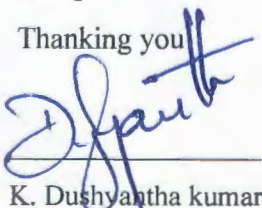 Thanking you
K. Dushyantha kumar